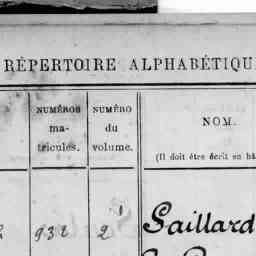 RÉPERTOIRE ALPHABÉTIQU
NUMÉROS
ma-
tricules.
NUMÉRO
du
volume.
NOM.
(Il doit être écrit en bâ
932 2 Gaillard